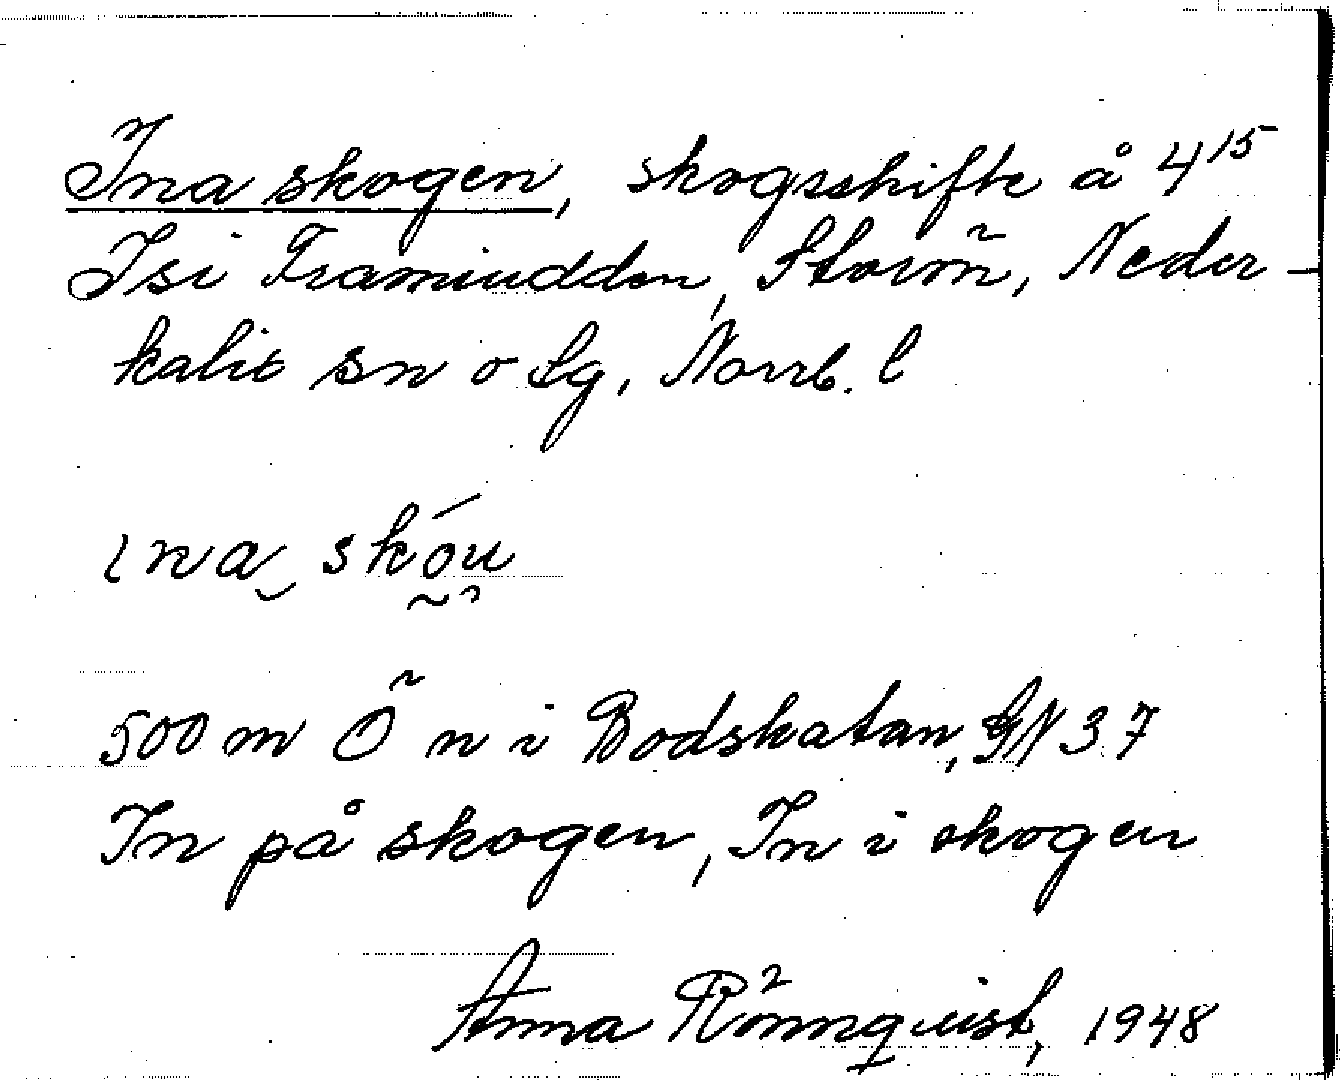 Ina skogen, skogsskifte å 4¹⁵
Isi Framiudden, Storön, Neder-
kalix sn o Lg, Norrb. l
ina skóu
500 m Ö n i Bodskatan, GN 37
In på skogen, In i skogen
Anna Rönnqvist, 1948